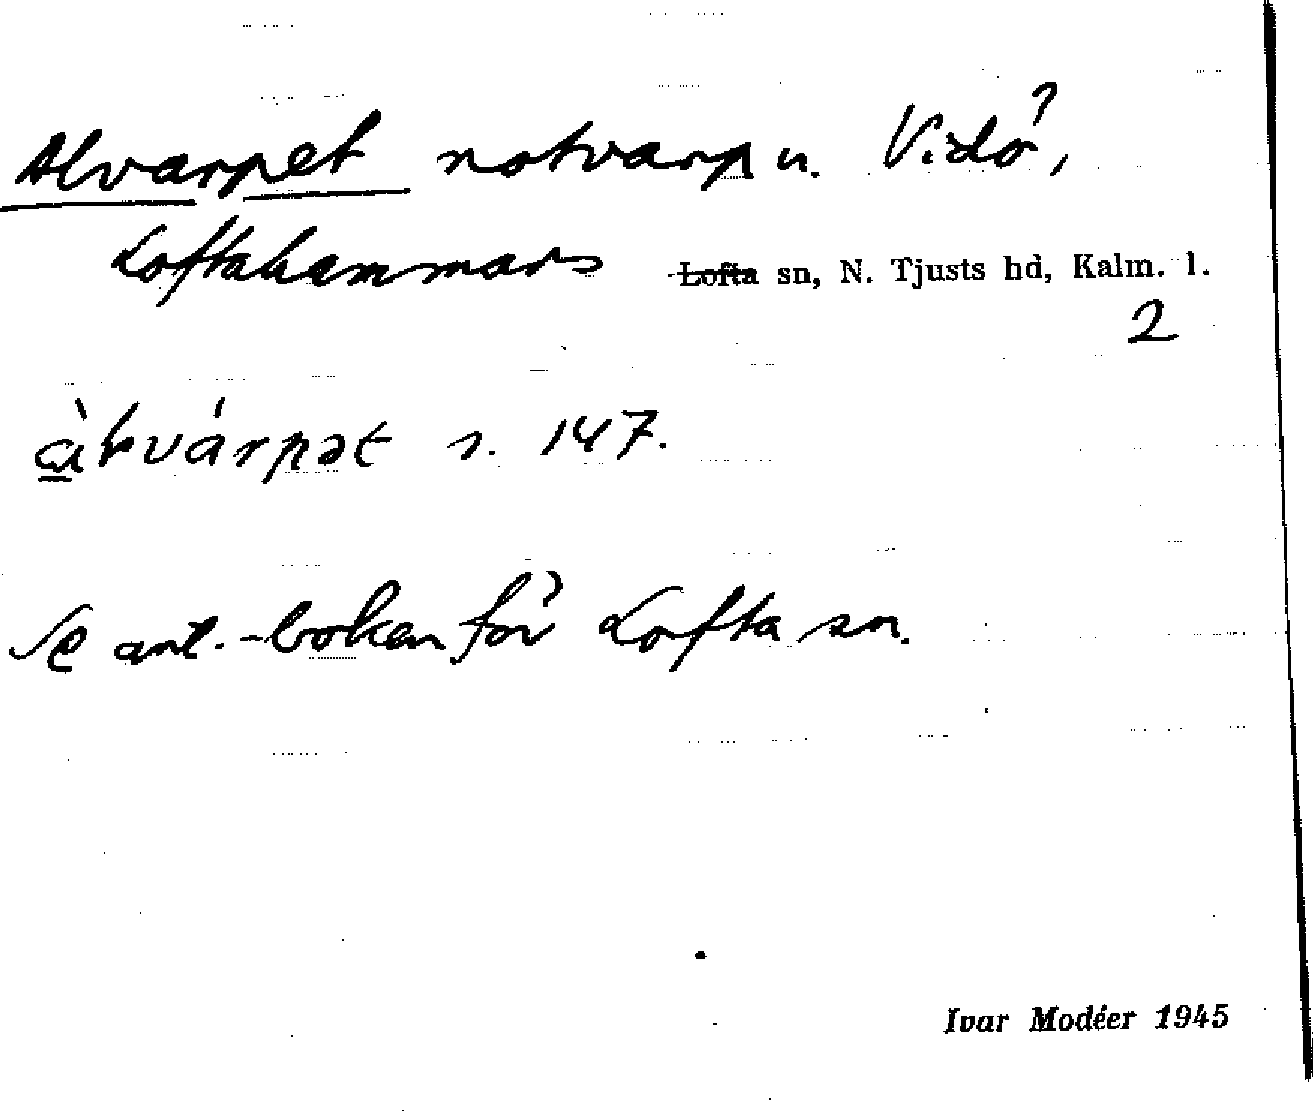 Alvarpet notvarp u. Vidö,
Loftahammars Lofta sn, N. Tjusts hd, Kalm. l.
2
s. 147.
Se ant.-boken för Lofta sn.
Ivar Modéer 1945